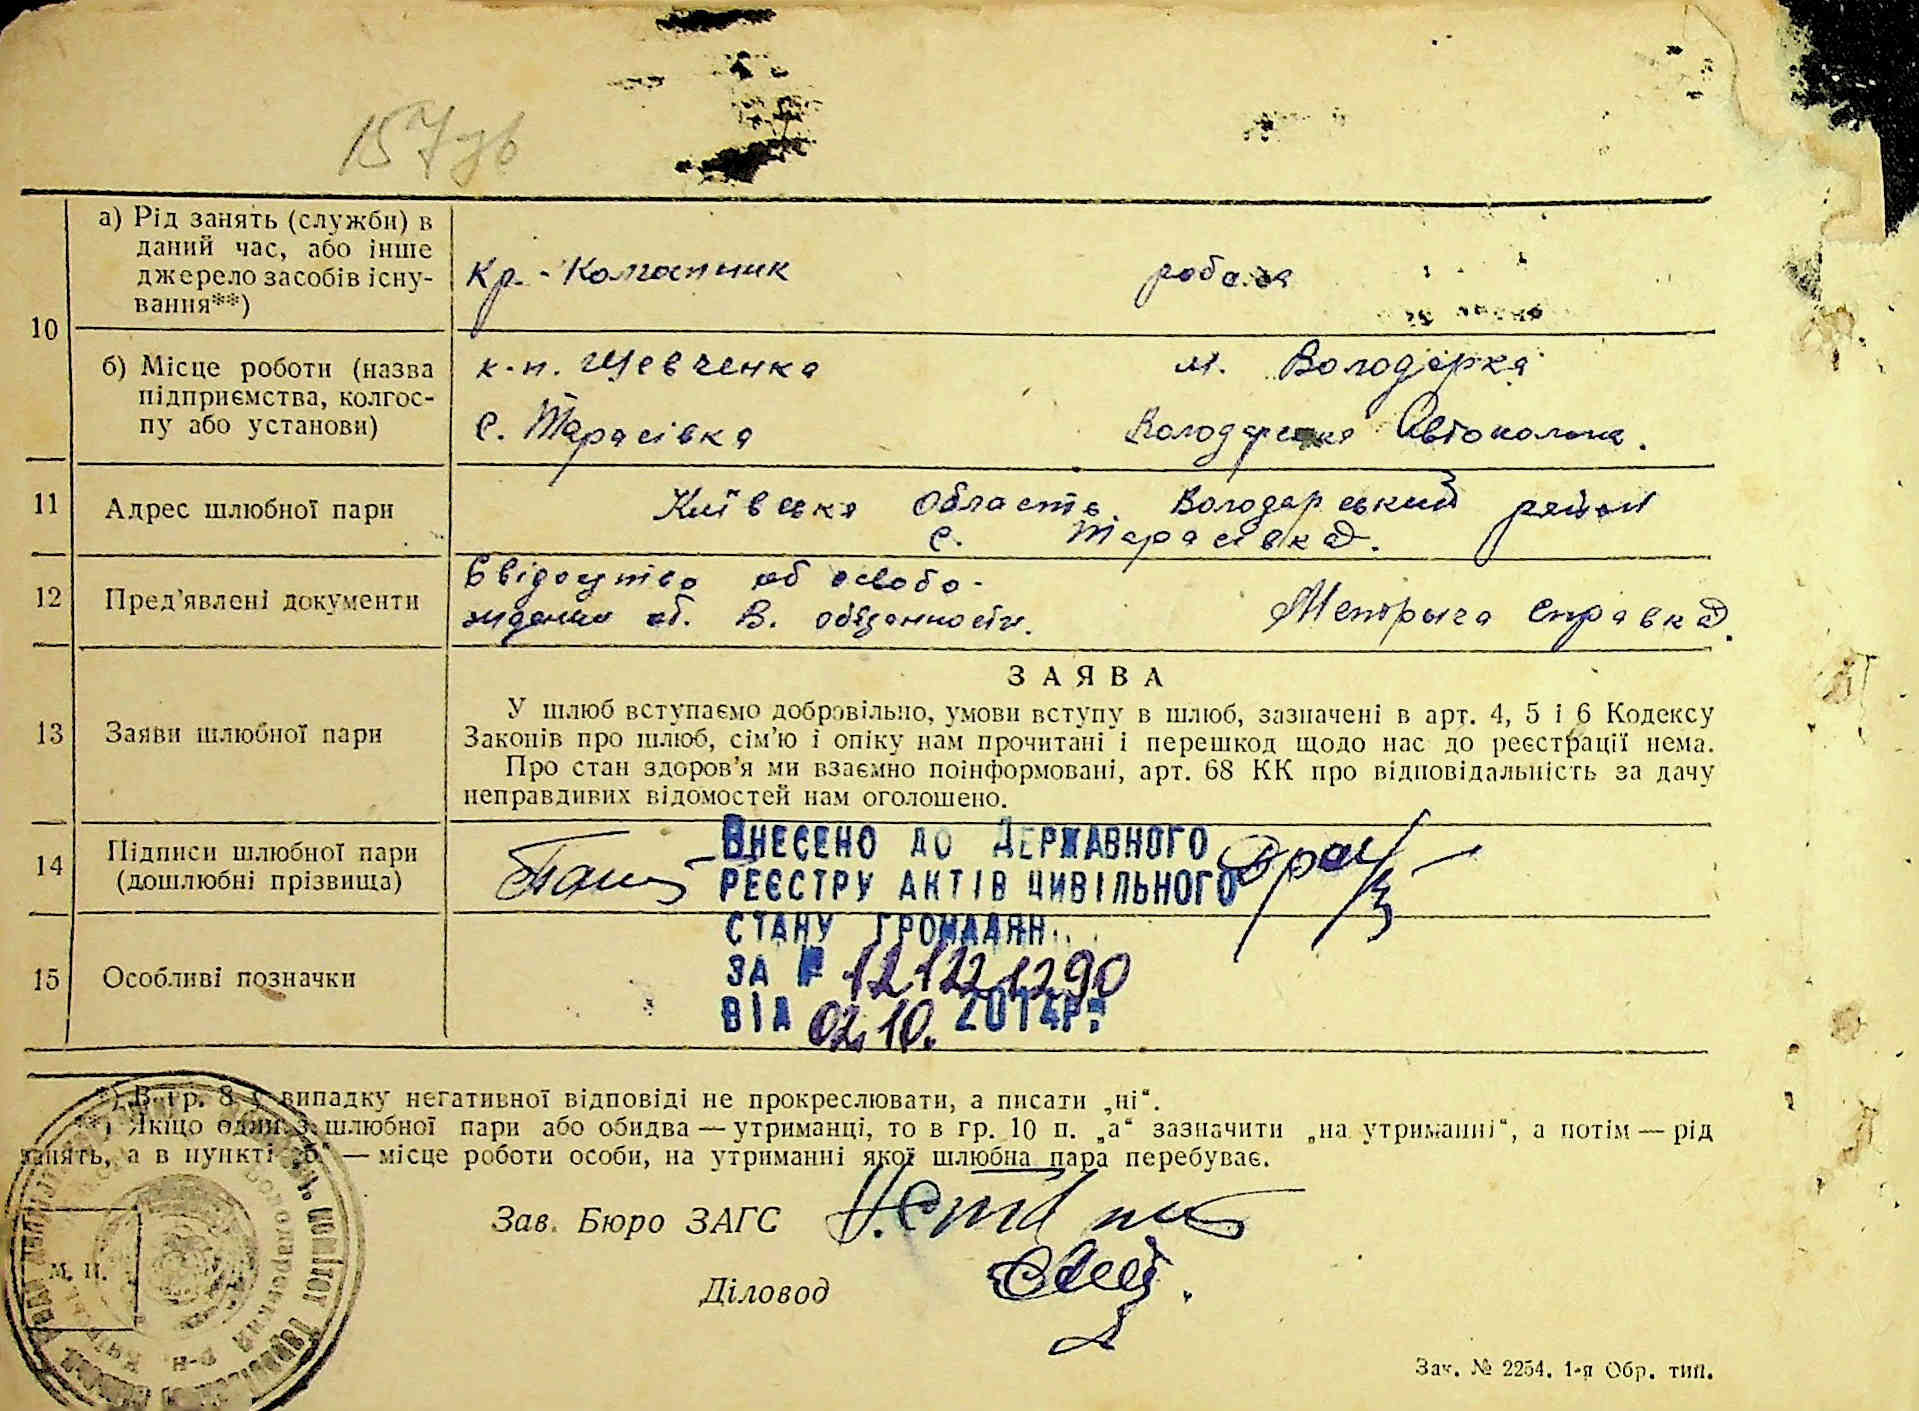 157
10
а) Рід занять (служби) в
даний час, або інше
джерело засобів існу-
вання**)
Кр. - Колгоспник
б) Місце роботи (назва
підприємства, колгос-
пу або установи)
к-п. Шевченка
м. Володарка
с. Тарасівка
Володарська Автоколона.
11
Адрес шлюбної пари
Київська область. Володарський район
с. Тарасівка.
12
Пред'явлені документи
Свідоцтво об освобо-
ждении от. В. обязанности.
Метрыча справка.
13
Заяви шлюбної пари
ЗАЯВА
У шлюб вступаємо добровільно, умови вступу в шлюб, зазначені в арт. 4, 5 і 6 Кодексу
Законів про шлюб, сім'ю і опіку нам прочитані і перешкод щодо нас до реєстрації нема.
Про стан здоров'я ми взаємно поінформовані, арт. 68 КК про відповідальність за дачу
неправдивих відомостей нам оголошено.
14
Підписи шлюбної пари
(дошлюбні прізвища)
Внесено до Державного
реєстру актів цивільного
стану громадян
за № 121221290
від 02.10. 2014р.
15
Особливі позначки
*) В гр. 8 у випадку негативної відповіді не прокреслювати, а писати „ні“.
**) Якщо один з шлюбної пари або обидва — утриманці, то в гр. 10 п. „а“ зазначити „на утриманні“, а потім — рід
занять, а в пункті „б“ — місце роботи особи, на утриманні якої шлюбна пара перебуває.
Зав. Бюро ЗАГС
Діловод
м. п.
Зак. № 2254. 1-я Обр. тип.